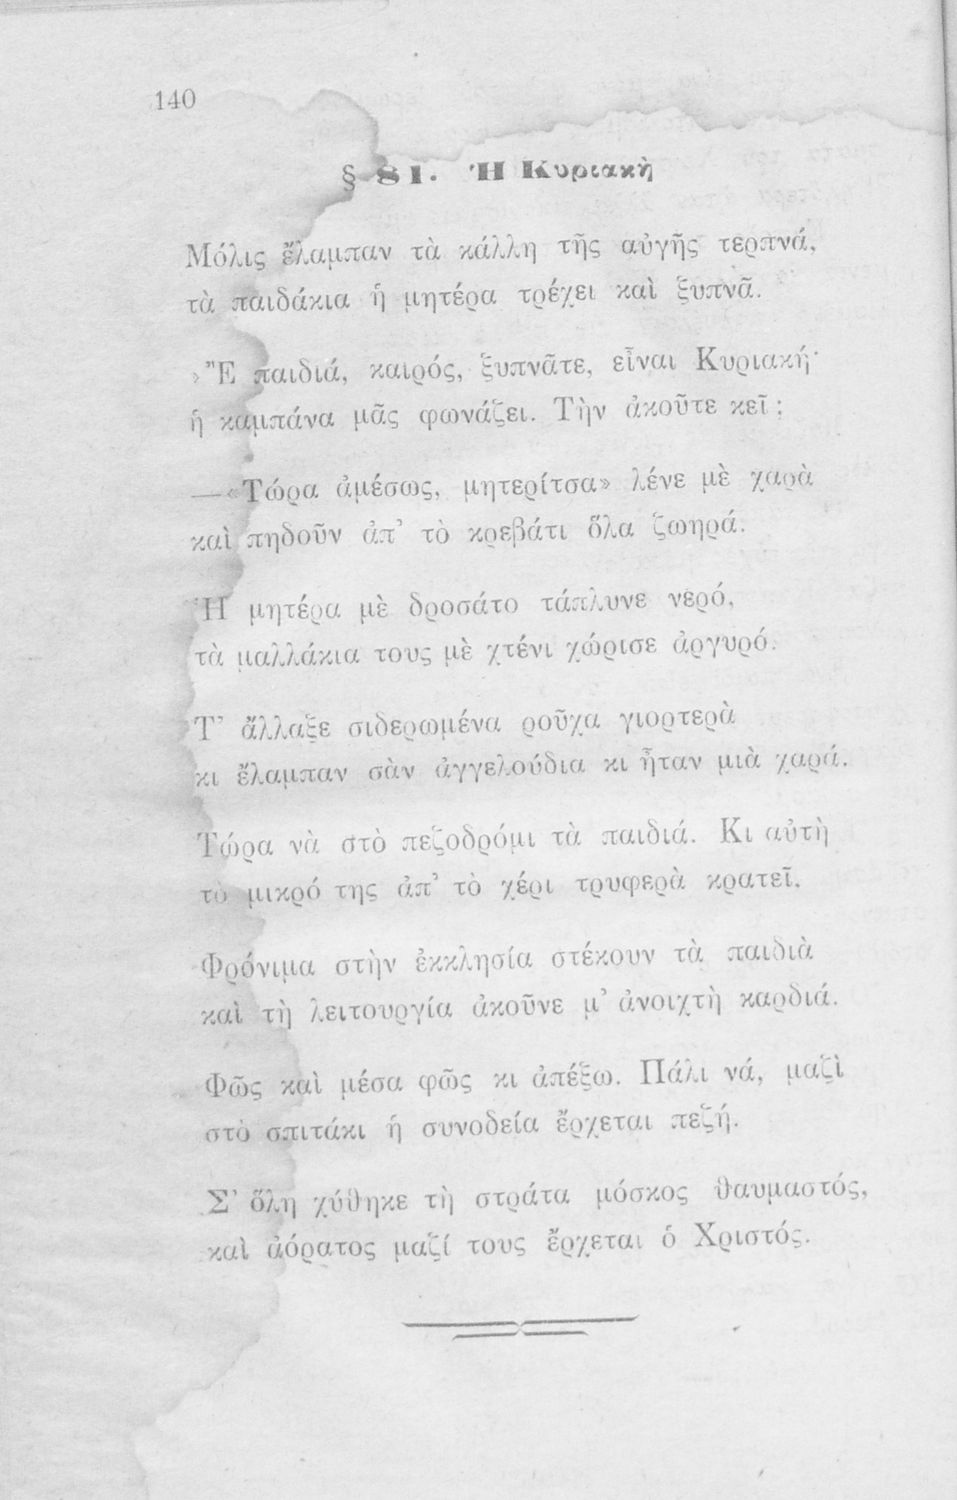 140
§ 81. Ἡ Κυριακὴ
Μόλις ἔλαμπαν τὰ κάλλη τῆς αὐγῆς τερπνά,
τὰ παιδάκια ἡ μητέρα τρέχει καὶ ξυπνᾶ.
»Ἔ παιδιά, καιρός, ξυπνᾶτε, εἶναι Κυριακή·
ἡ καμπάνα μᾶς φωνάζει. Τὴν ἀκοῦτε κεῖ;
—«Τώρα ἀμέσως, μητερίτσα» λένε μὲ χαρὰ
καὶ πηδοῦν ἀπ’ τὸ κρεβάτι ὅλα ζωηρά.
Ἡ μητέρα μὲ δροσάτο τάπλυνε νερό,
τὰ μαλλάκια τους μὲ χτένι χώρισε ἀργυρό.
Τ’ ἄλλαξε σιδερωμένα ροῦχα γιορτερὰ
κι ἔλαμπαν σὰν ἀγγελούδια κι ἦταν μιὰ χαρά.
Τώρα νὰ στὸ πεζοδρόμι τὰ παιδιά. Κι αὐτὴ
τὸ μικρό της ἀπ’ τὸ χέρι τρυφερὰ κρατεῖ.
Φρόνιμα στὴν ἐκκλησία στέκουν τὰ παιδιὰ
καὶ τὴ λειτουργία ἀκοῦνε μ’ ἀνοιχτὴ καρδιά.
Φῶς καὶ μέσα φῶς κι ἀπέξω. Πάλι νά, μαζὶ
στὸ σπιτάκι ἡ συνοδεία ἔρχεται πεζή.
Σ’ ὅλη χύθηκε τὴ στράτα μόσκος θαυμαστός,
καὶ ἀόρατος μαζί τους ἔρχεται ὁ Χριστός.